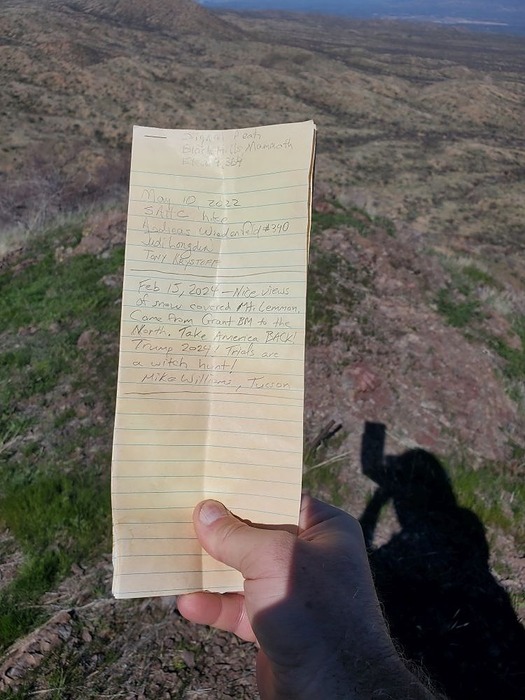 Signal Peak
Black Hills Mammoth
May 10, 2022
SAHC hike
Andreas #340
Judi Longdon
Tony
Feb 15, 2024 - Nice views
of snow covered Mt. Lemmon.
Came from Grant BM to the
North. Take America BACK!
Trump 2024! Trials are
a witch hunt!
Mike Williams, Tucson